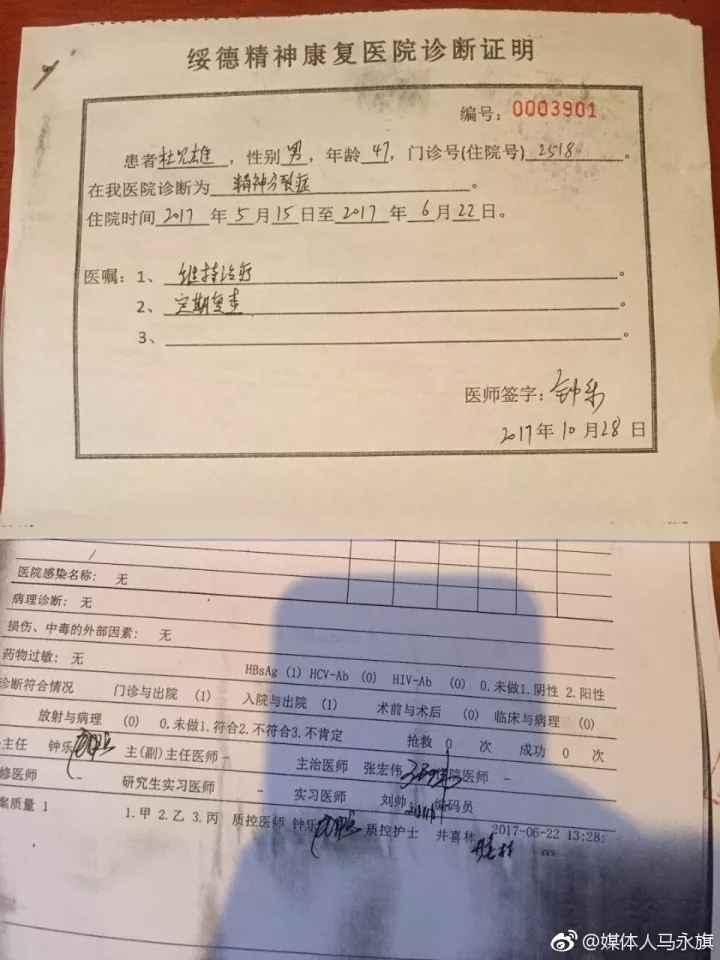 绥德精神康复医院诊断证明
编号：0003901
患者杜兄雄，性别男，年龄47，门诊号(住院号)2518。
在我医院诊断为精神分裂症。
住院时间2017年5月15日至2017年6月22日。
医嘱：1、维持治疗。
2、定期复查。
3、。
医师签字：钟乐
2017年10月28日
医院感染名称： 无
病理诊断： 无
损伤、中毒的外部因素： 无
药物过敏： 无
HBsAg (1) HCV-Ab (0) HIV-Ab (0) 0.未做1.阴性 2.阳性
诊断符合情况 门诊与出院 (1) 入院与出院 (1) 术前与术后 (0) 临床与病理 (0)
放射与病理 (0) 0.未做1.符合2.不符合3.不肯定 抢救 0 次 成功 0 次
主任 钟乐 主(副)主任医师 - 主治医师 张宏伟 院医师 -
修医师 - 研究生实习医师 - 实习医师 刘帅 编码员
案质量 1 1.甲 2.乙 3.丙 质控医师 钟乐 质控护士 井喜林 2017-06-22 13:28:
@媒体人马永旗